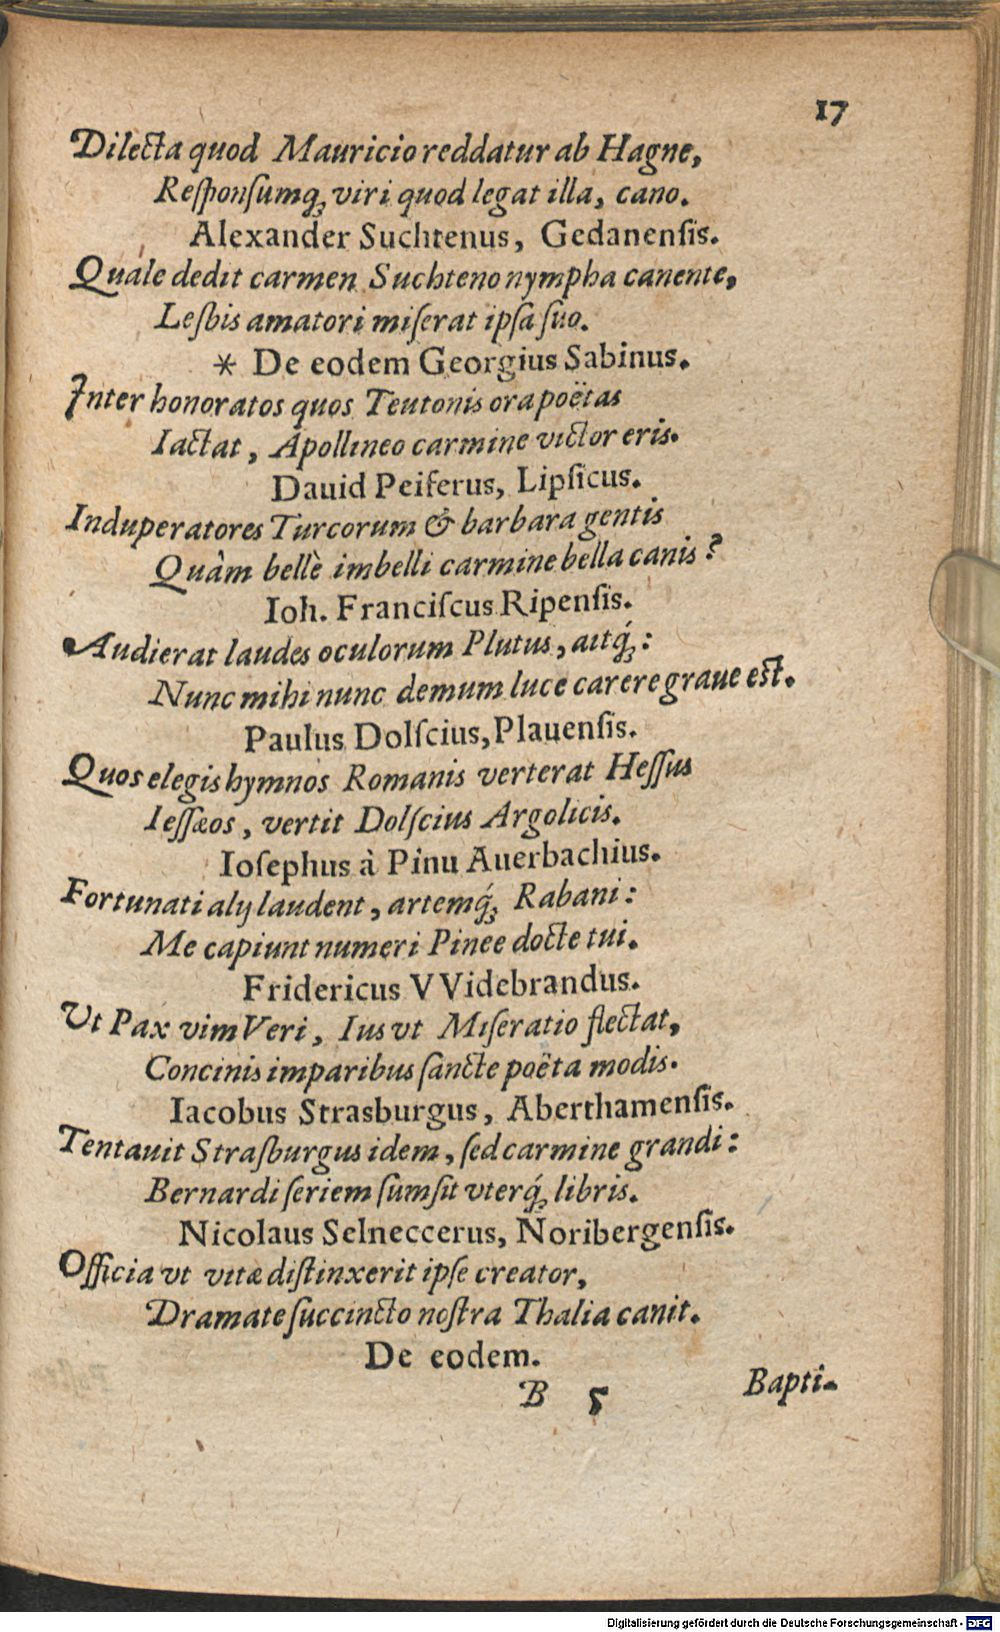 17
Dilecta quod Mauricio reddatur ab Hagne,
Reſponſumq́; viri quod legat illa, cano.
Alexander Suchtenus, Gedanenſis.
Quale dedit carmen Suchteno nympha canente,
Leſbis amatori miſerat ipſa ſuo.
* De eodem Georgius Sabinus.
Inter honoratos quos Teutonis ora poëtas
Iactat, Apollineo carmine victor eris.
Dauid Peiferus, Lipſicus.
Induperatores Turcorum & barbara gentis
Quàm bellè imbelli carmine bella canis?
Ioh. Franciſcus Ripenſis.
Audierat laudes oculorum Plutus, aitq́;:
Nunc mihi nunc demum luce carere graue est.
Paulus Dolſcius, Plauenſis.
Quos elegis hymnos Romanis verterat Heſſus
Ieſſæos, vertit Dolſcius Argolicis.
Ioſephus à Pinu Auerbachius.
Fortunati alij laudent, artemq́; Rabani:
Me capiunt numeri Pinee docte tui.
Fridericus VVidebrandus.
Vt Pax vim Veri, Ius vt Miſeratio flectat,
Concinis imparibus ſancte poëta modis.
Iacobus Strasburgus, Aberthamenſis.
Tentauit Straſburgus idem, ſed carmine grandi:
Bernardi ſeriem ſumſit vterq́; libris.
Nicolaus Selneccerus, Noribergenſis.
Officia vt vitæ diſtinxerit ipſe creator,
Dramate ſuccincto noſtra Thalia canit.
De eodem.
B 5 Bapti-
Digitalisierung gefördert durch die Deutsche Forschungsgemeinschaft - DFG